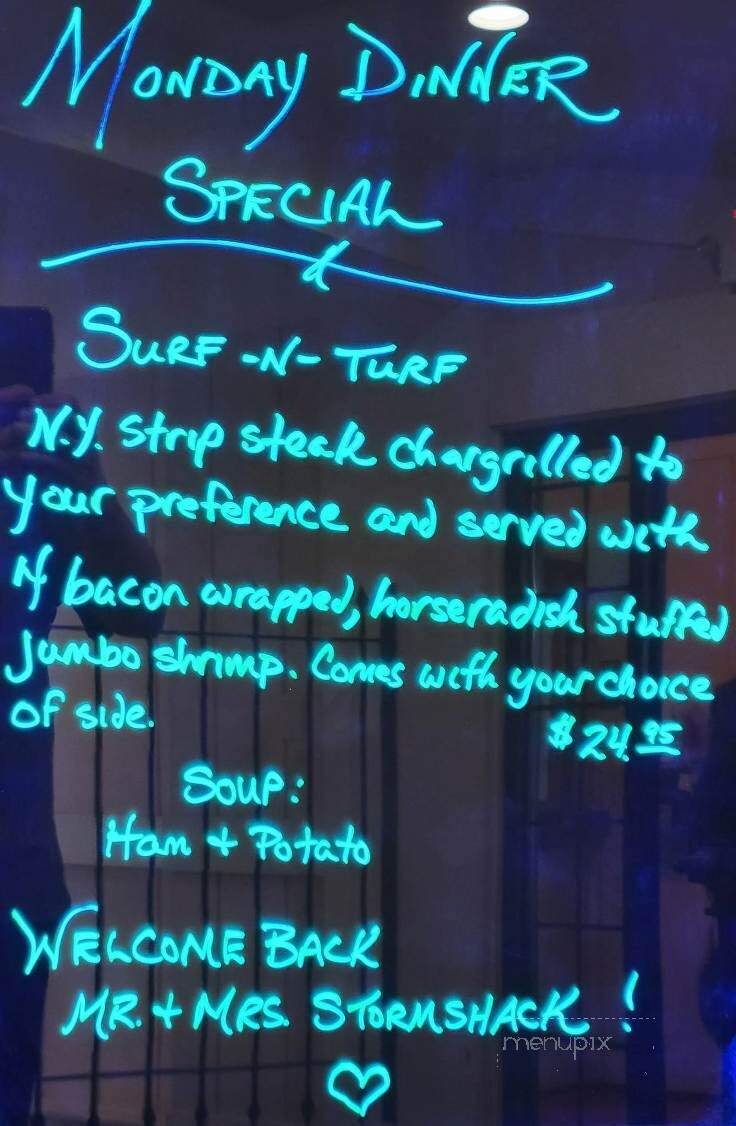 MONDAY DINNER
SPECIAL
SURF-N-TURF
N.Y. strip steak chargrilled to
your preference and served with
4 bacon wrapped, horseradish stuffed
Jumbo shrimp. Comes with your choice
of side.
$24.95
SOUP:
Ham + Potato
WELCOME BACK
MR. + MRS. STORMSHACK!
menupix